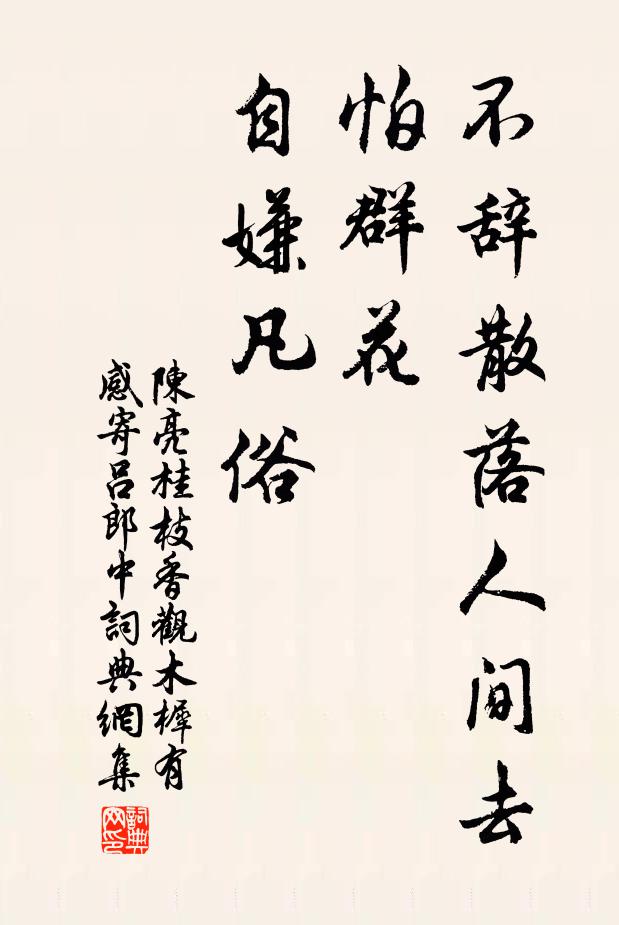 不辞散落人间去
怕群花
自嫌凡俗
陳亮桂枝香觀木樨有
感寄吕郎中詞典網集
詞典网印